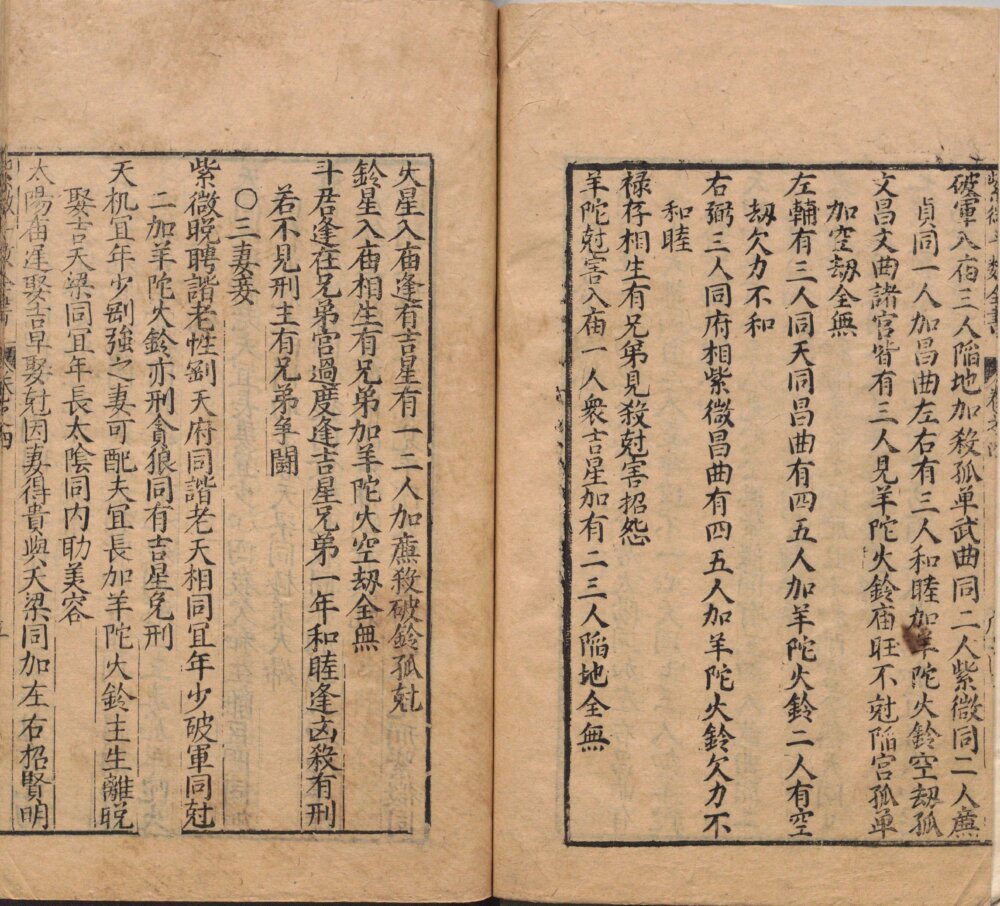 破軍入庙三人陷地加殺孤单武曲同二人紫微同二人廉
貞同一人加昌曲左右有三人和睦加羊陀火鈴空刼孤
文昌文曲諸宮皆有三人見羊陀火鈴庙旺不尅陷宮孤单
加空刼全無
左輔有三人同天同昌曲有四五人加羊陀火鈴二人有空
刼欠力不和
右弼三人同府相紫微昌曲有四五人加羊陀火鈴欠力不
和睦
禄存相生有兄弟見殺尅害招怨
羊陀尅害入庙一人衆吉星加有二三人陷地全無
火星入庙逢有吉星有一二人加廉殺破鈴孤尅
鈴星入庙相生有兄弟加羊陀火空刼全無
斗君逢在兄弟宮過度逢吉星兄弟一年和睦逢凶殺有刑
若不見刑主有兄弟争鬪
〇三妻妾
紫微晚聘諧老性劉天府同諧老天相同宜年少破軍同尅
二加羊陀火鈴亦刑貪狼同有吉星免刑
天机宜年少剛強之妻可配夫宜長加羊陀火鈴主生離晚
娶吉天梁同宜年長太陰同内助美容
太陽庙遲娶吉早娶尅因妻得貴與天梁同加左右招賢明